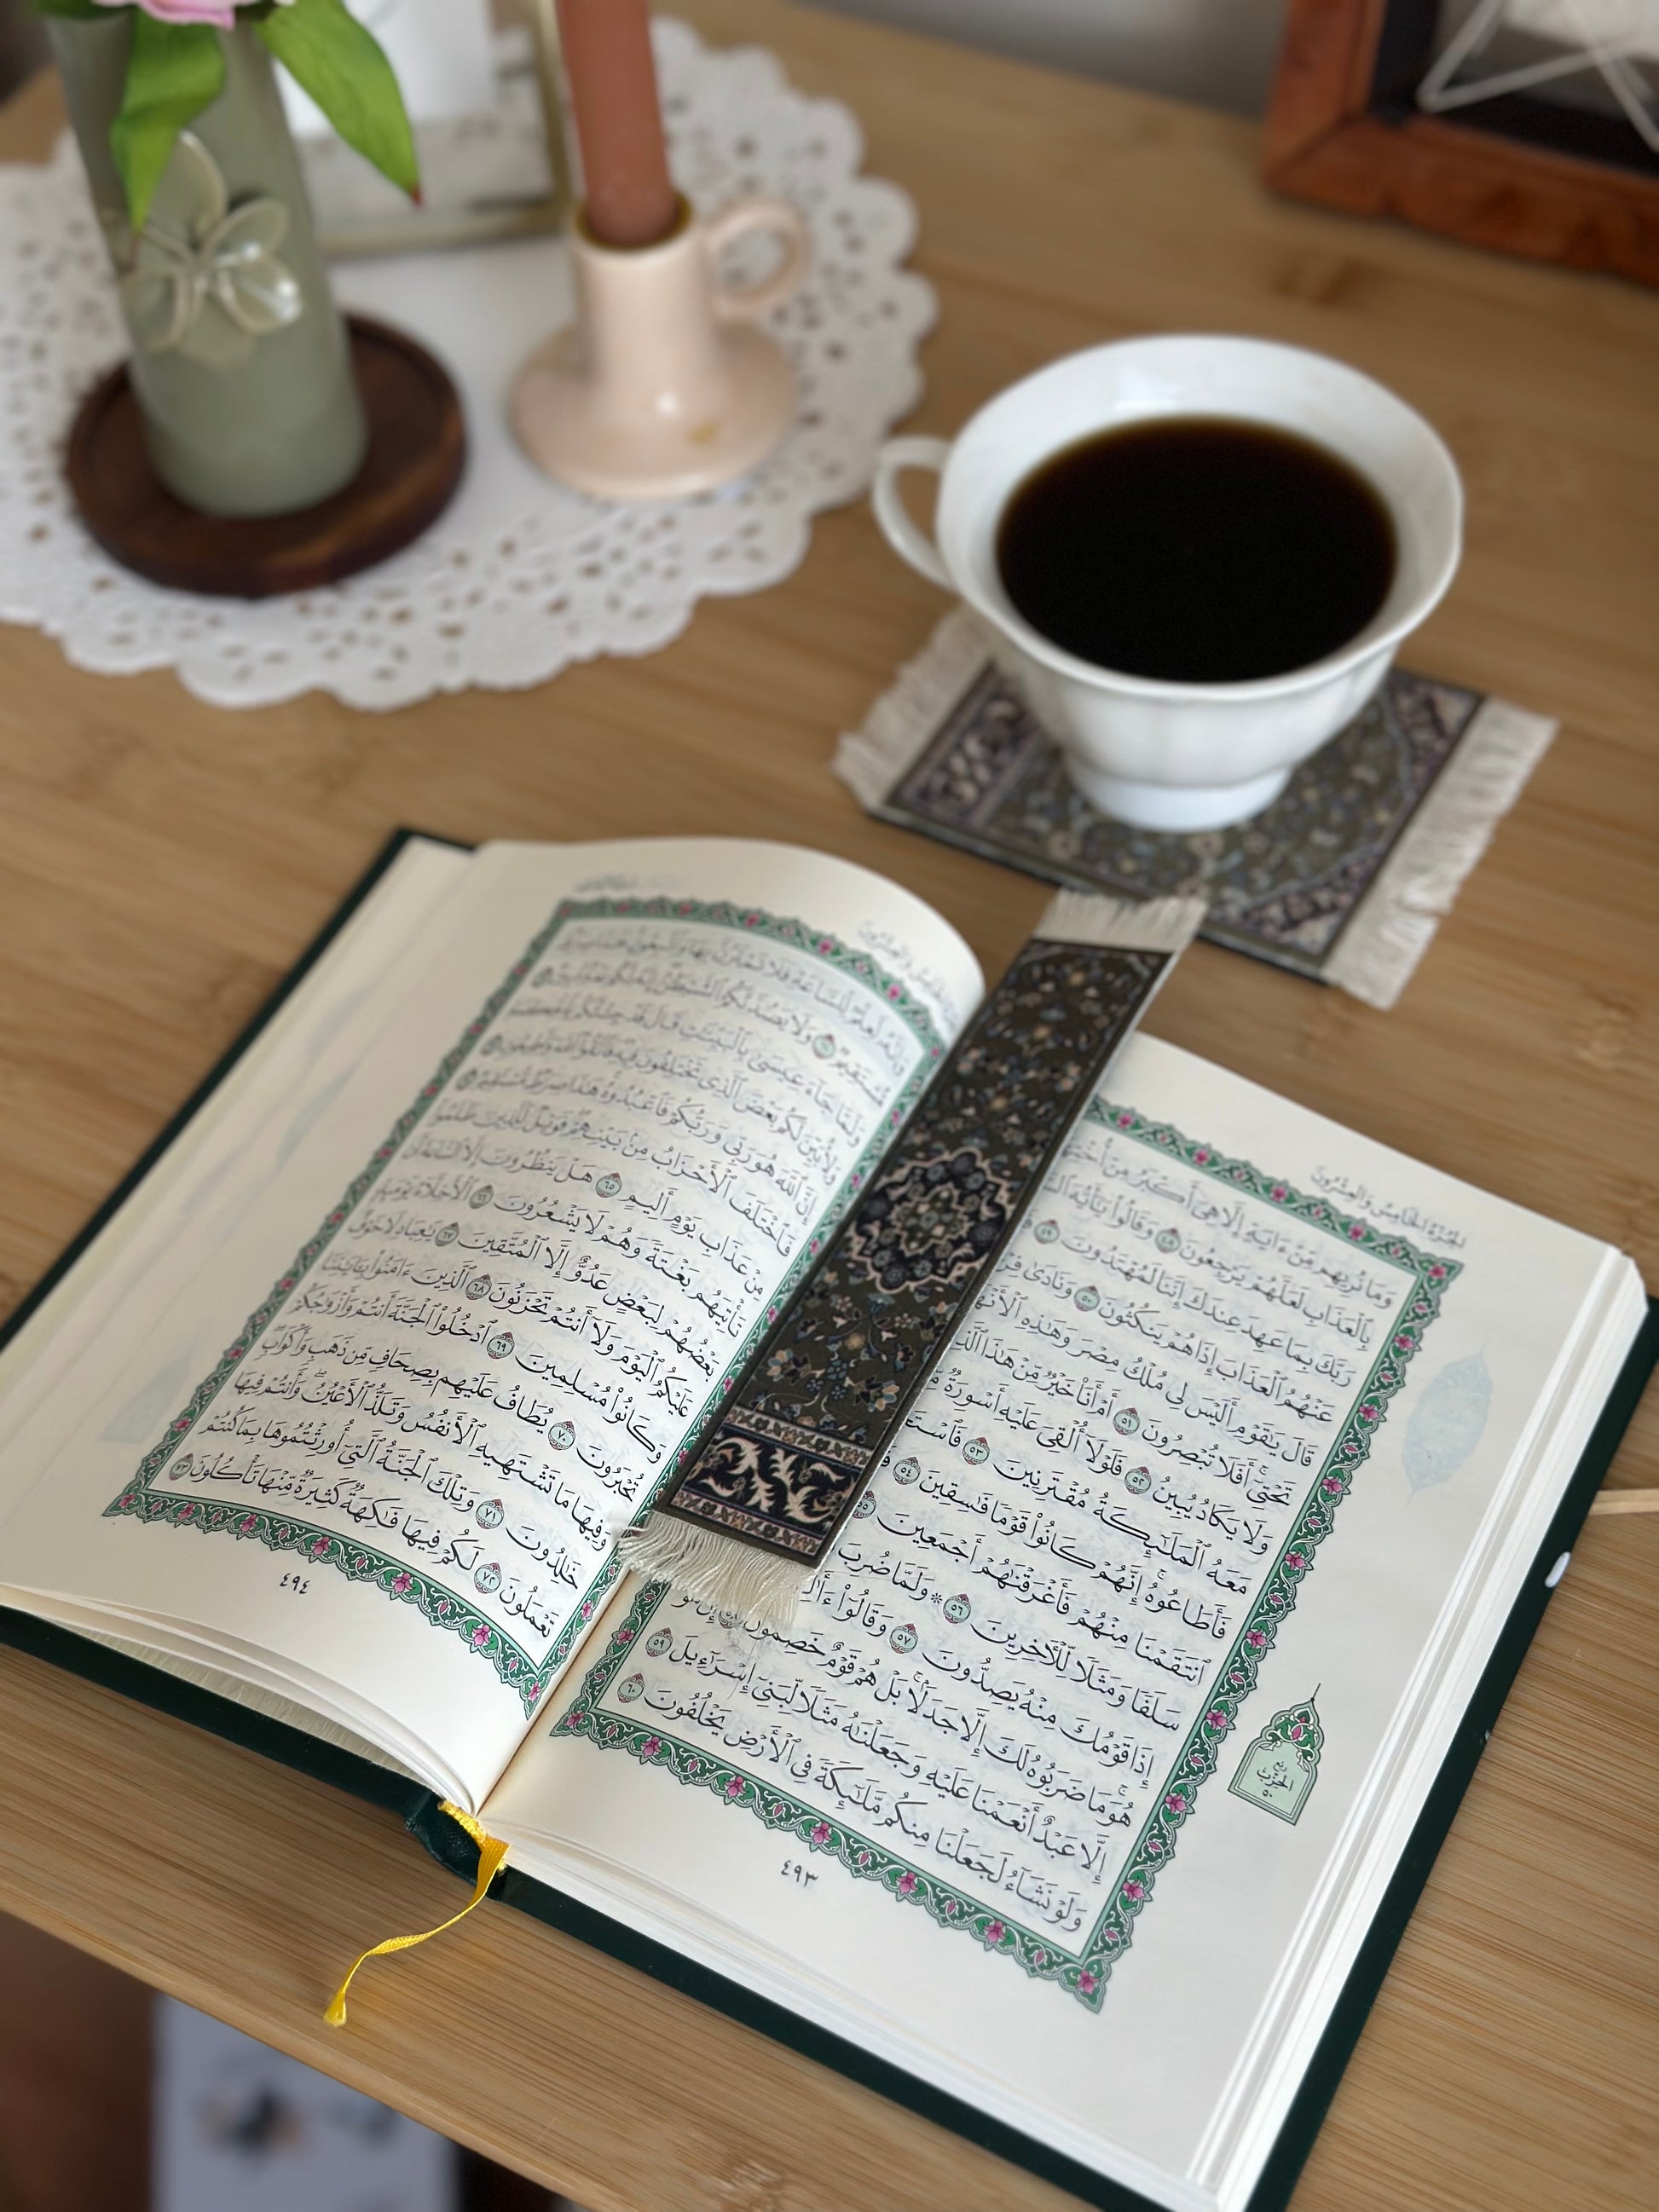 الجزء الخامس والعشرون
وَمَا نُرِيهِم مِّنْ ءَايَةٍ إِلَّا هِىَ أَكْبَرُ مِنْ أُخْتِهَا
بِٱلْعَذَابِ لَعَلَّهُمْ يَرْجِعُونَ ٤٨ وَقَالُوا۟ يَٰٓأَيُّهَ
رَبَّكَ بِمَا عَهِدَ عِندَكَ إِنَّنَا لَمُهْتَدُونَ ٤٩
عَنْهُمُ ٱلْعَذَابَ إِذَا هُمْ يَنكُثُونَ ٥٠ وَنَادَىٰ
قَالَ يَٰقَوْمِ أَلَيْسَ لِى مُلْكُ مِصْرَ وَهَٰذِهِ
تَحْتِىٓ أَفَلَا تُبْصِرُونَ ٥١ أَمْ أَنَا۠ خَيْرٌ مِّنْ هَٰذَا
وَلَا يَكَادُ يُبِينُ ٥٢ فَلَوْلَآ أُلْقِىَ عَلَيْهِ أَسْوِرَةٌ
مَعَهُ ٱلْمَلَٰٓئِكَةُ مُقْتَرِنِينَ ٥٣
فَأَطَاعُوهُ إِنَّهُمْ كَانُوا۟ قَوْمًا فَٰسِقِينَ ٥٤
ٱنتَقَمْنَا مِنْهُمْ فَأَغْرَقْنَٰهُمْ أَجْمَعِينَ ٥٥
سَلَفًا وَمَثَلًا لِّلْءَاخِرِينَ ٥٦ ۞ وَلَمَّا ضُرِبَ
إِذَا قَوْمُكَ مِنْهُ يَصِدُّونَ ٥٧ وَقَالُوٓا۟
هُوَ مَا ضَرَبُوهُ لَكَ إِلَّا جَدَلًۢا بَلْ هُمْ قَوْمٌ خَصِمُونَ ٥٨ إِنْ هُوَ
إِلَّا عَبْدٌ أَنْعَمْنَا عَلَيْهِ وَجَعَلْنَٰهُ مَثَلًا لِّبَنِىٓ إِسْرَٰٓءِيلَ ٥٩
وَلَوْ نَشَآءُ لَجَعَلْنَا مِنكُم مَّلَٰٓئِكَةً فِى ٱلْأَرْضِ يَخْلُفُونَ ٦٠
ربع
الحزب
٥٠
٤٩٣
وَإِنَّهُۥ لَعِلْمٌ لِّلسَّاعَةِ فَلَا تَمْتَرُنَّ بِهَا وَٱتَّبِعُونِ هَٰذَا صِرَٰطٌ
مُّسْتَقِيمٌ ٦١ وَلَا يَصُدَّنَّكُمُ ٱلشَّيْطَٰنُ إِنَّهُۥ لَكُمْ عَدُوٌّ مُّبِينٌ ٦٢
وَلَمَّا جَآءَ عِيسَىٰ بِٱلْبَيِّنَٰتِ قَالَ قَدْ جِئْتُكُم بِٱلْحِكْمَةِ
وَلِأُبَيِّنَ لَكُم بَعْضَ ٱلَّذِى تَخْتَلِفُونَ فِيهِ فَٱتَّقُوا۟ ٱللَّهَ وَأَطِيعُونِ ٦٣
إِنَّ ٱللَّهَ هُوَ رَبِّى وَرَبُّكُمْ فَٱعْبُدُوهُ هَٰذَا صِرَٰطٌ مُّسْتَقِيمٌ ٦٤
فَٱخْتَلَفَ ٱلْأَحْزَابُ مِنۢ بَيْنِهِمْ فَوَيْلٌ لِّلَّذِينَ ظَلَمُوا۟
مِنْ عَذَابِ يَوْمٍ أَلِيمٍ ٦٥ هَلْ يَنظُرُونَ إِلَّا ٱلسَّاعَةَ أَن
تَأْتِيَهُم بَغْتَةً وَهُمْ لَا يَشْعُرُونَ ٦٦ ٱلْأَخِلَّآءُ يَوْمَئِذٍۭ
بَعْضُهُمْ لِبَعْضٍ عَدُوٌّ إِلَّا ٱلْمُتَّقِينَ ٦٧ يَٰعِبَادِ لَا خَوْفٌ
عَلَيْكُمُ ٱلْيَوْمَ وَلَآ أَنتُمْ تَحْزَنُونَ ٦٨ ٱلَّذِينَ ءَامَنُوا۟ بِـَٔايَٰتِنَا
وَكَانُوا۟ مُسْلِمِينَ ٦٩ ٱدْخُلُوا۟ ٱلْجَنَّةَ أَنتُمْ وَأَزْوَٰجُكُمْ
تُحْبَرُونَ ٧٠ يُطَافُ عَلَيْهِم بِصِحَافٍ مِّن ذَهَبٍ وَأَكْوَابٍ
وَفِيهَا مَا تَشْتَهِيهِ ٱلْأَنفُسُ وَتَلَذُّ ٱلْأَعْيُنُ وَأَنتُمْ فِيهَا
خَٰلِدُونَ ٧١ وَتِلْكَ ٱلْجَنَّةُ ٱلَّتِىٓ أُورِثْتُمُوهَا بِمَا كُنتُمْ
تَعْمَلُونَ ٧٢ لَكُمْ فِيهَا فَٰكِهَةٌ كَثِيرَةٌ مِّنْهَا تَأْكُلُونَ ٧٣
٤٩٤